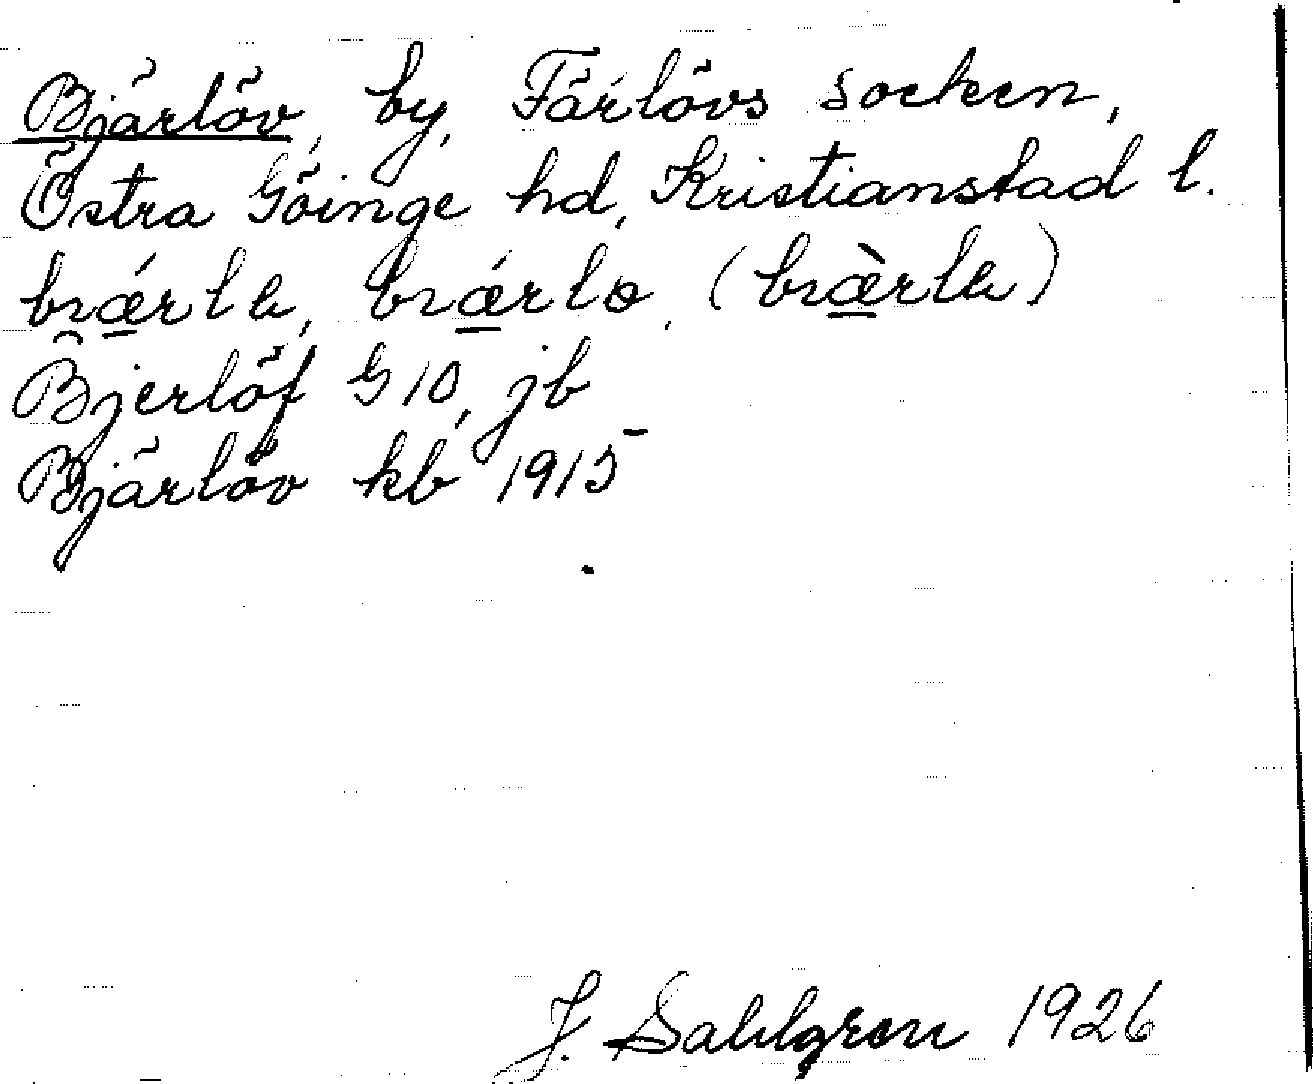 Bjärlöv, by, Färlövs socken,
Östra Göinge hd, Kristianstad l.
Bjerlöf G 10, jb
Bjärlöv kb 1915
J. Sahlgren 1926